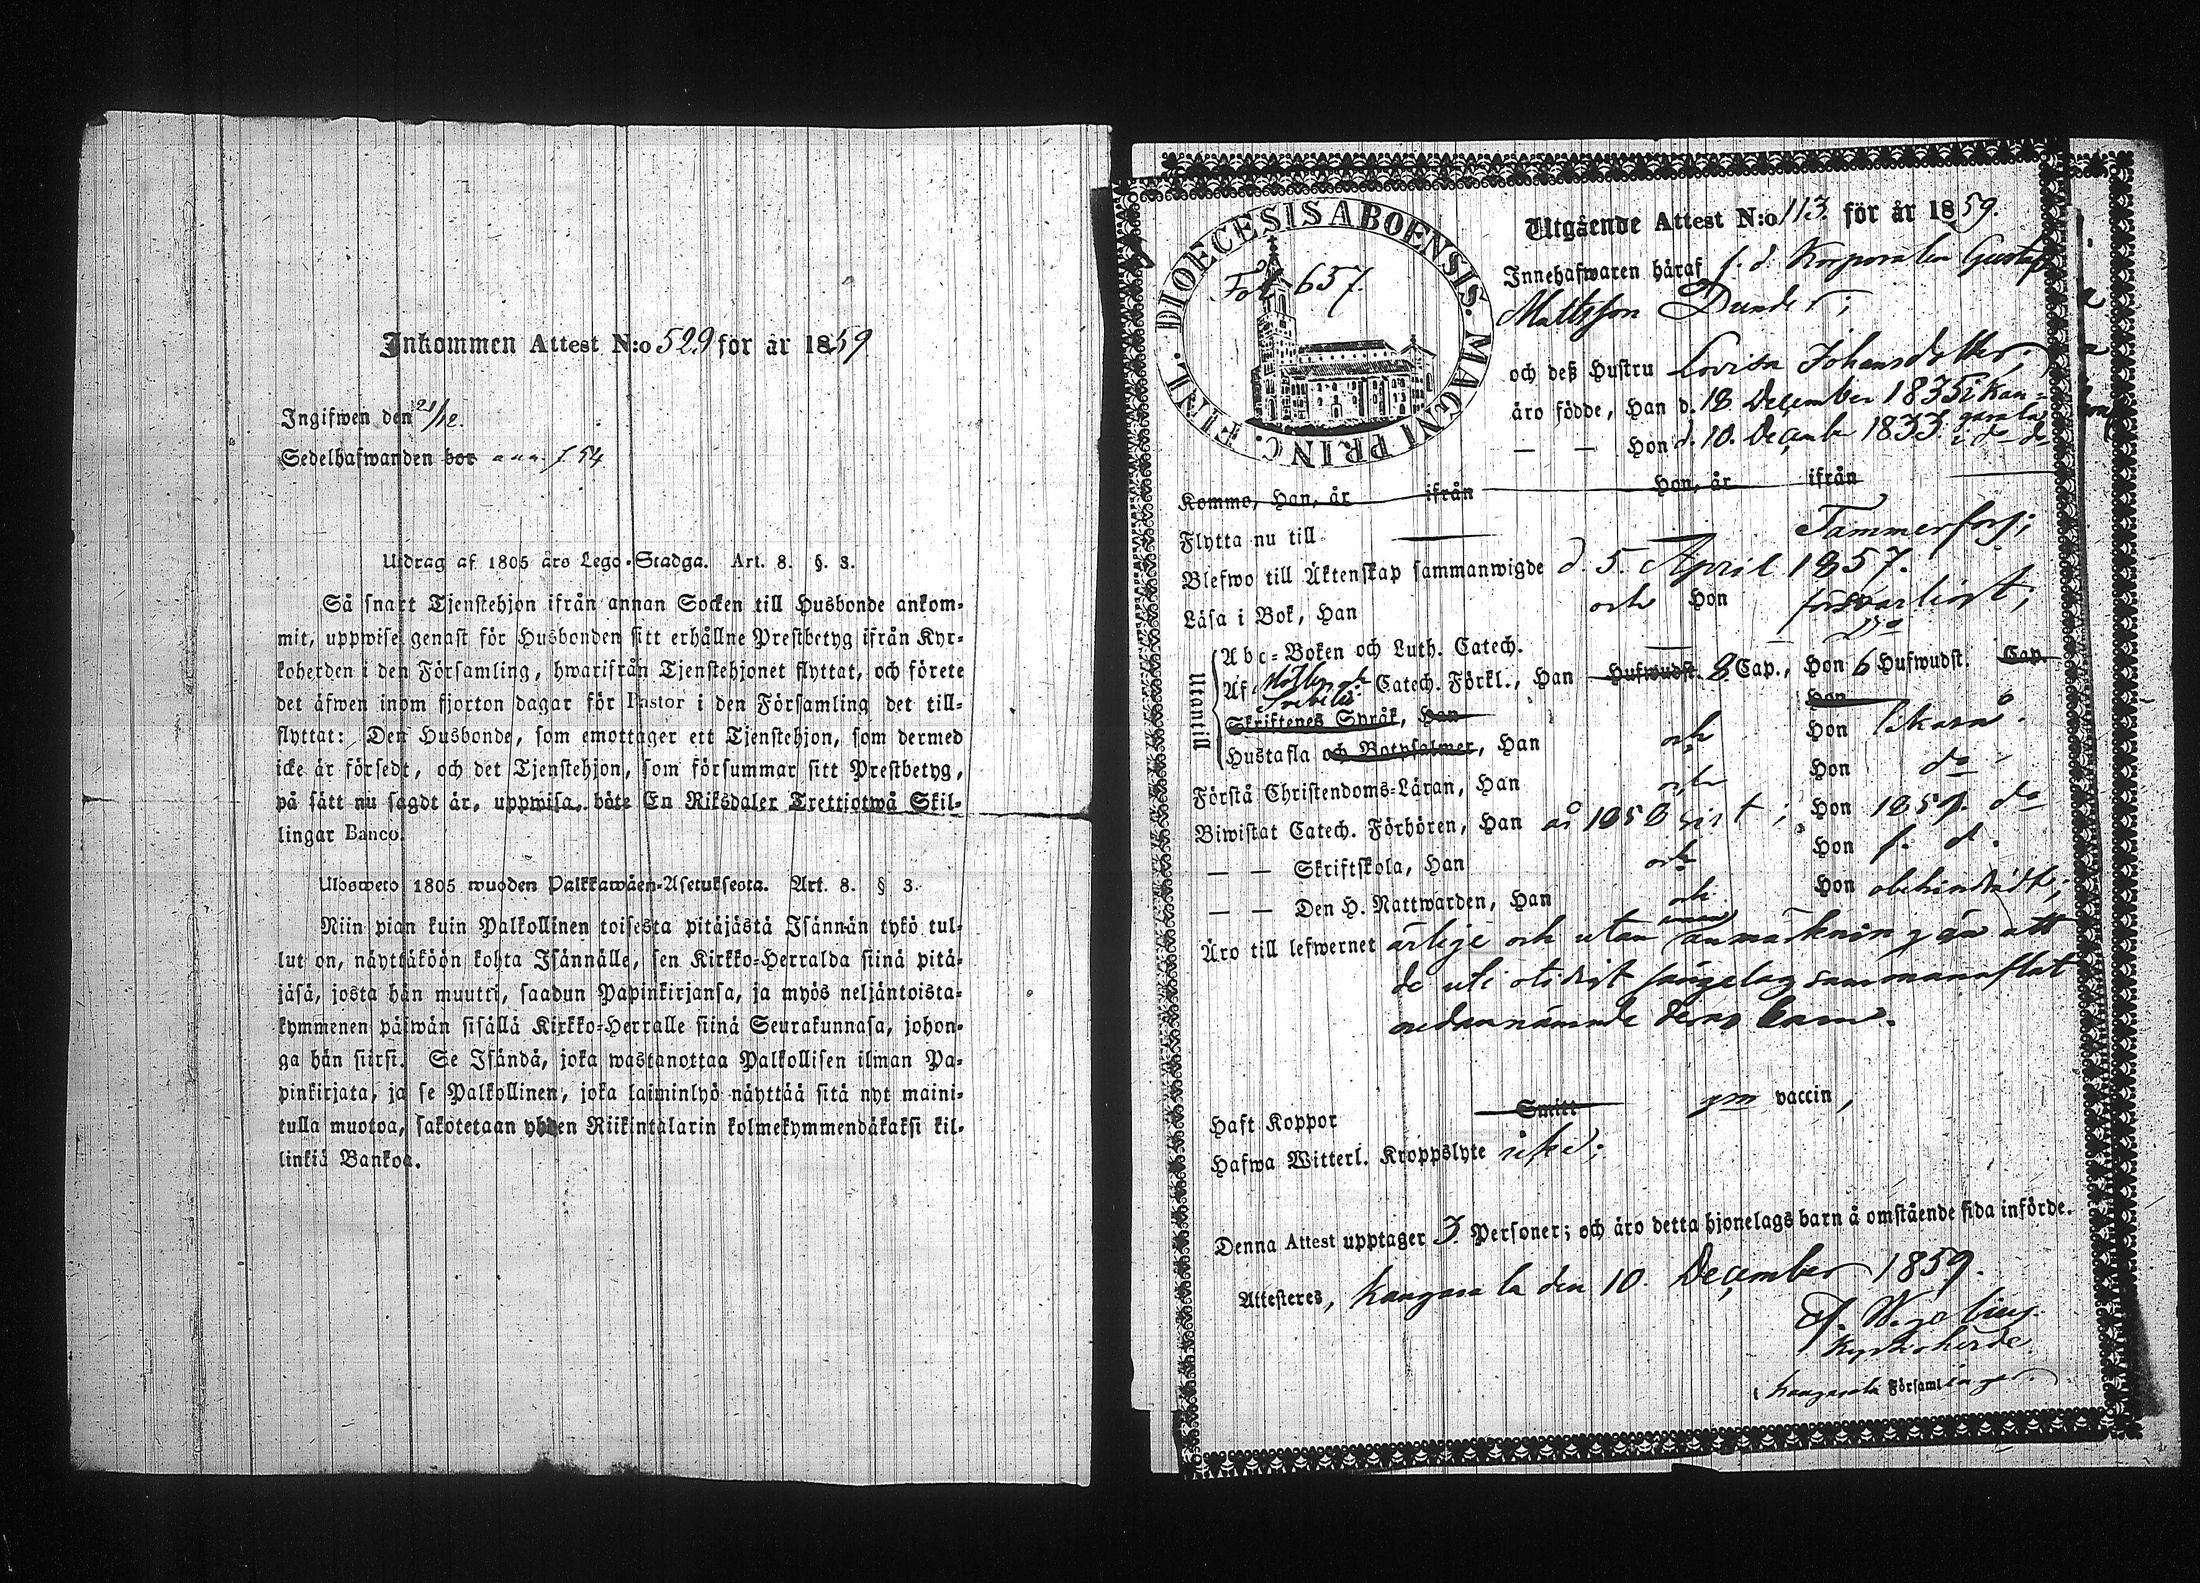 Inkommen Attest N:o 529 för år 1859
Ingifwen den 21/12.
Sedelhafwanden bor f 54
Utdrag af 1805 års Lego-Stadga. Art. 8. §. 3.
Så snart Tjenstehjon ifrån annan Socken till Husbonde ankom-
mit, uppwise genast för Husbonden sitt erhållne Prestbetyg ifrån Kyr-
koherden i den Församling, hwarifrån Tjenstehjonet flyttat, och förete
det äfwen inom fjorton dagar för Pastor i den Församling det till-
flyttat: Den Husbonde, som emottager ett Tjenstehjon, som dermed
icke är försedt, och det Tjenstehjon, som försummar sitt Prestbetyg,
på sätt nu sagdt är, uppwisa, böte En Riksdaler Trettiotwå Skil-
lingar Banco.
Ulosweto 1805 wuoden Palkkawäen-Asetuksesta. Art. 8. § 3.
Niin pian kuin Palkollinen toisesta pitäjästä Isännän tykö tul-
lut on, näyttäköön kohta Isännälle, sen Kirkko-Herralda siinä pitä-
jäsä, josta hän muutti, saadun Papinkirjansa, ja myös neljäntoista-
kymmenen päiwän sisällä Kirkko-Herralle siinä Seurakunnasa, johon-
ga hän siirsi. Se Isändä, joka wastanottaa Palkollisen ilman Pa-
pinkirjata, ja se Palkollinen, joka laiminlyö näyttää sitä nyt maini-
tulla muotoa, sakotetaan yhden Riikintalarin kolmekymmendäkaksi kil-
linkiä Bankoa.
FINL. DIOECESIS ABOENSIS. MAGNI PRINC.
Fol. 657.
Utgående Attest N:o 113. för år 1859.
Innehafwaren häraf f. d. Korporalen Gustaf
Mattsson Dunder;
och deß Hustru Lovisa Johansdotter,
äro födde, Han d. 18 December 1835 i Kan-
gasala
— — Hon d. 10. December 1833. i do do
Kommo, Han, år ifrån Hon, år ifrån
Flytta nu till Tammerfors;
Blefwo till Äktenskap sammanwigde d. 5. April 1857.
Läsa i Bok, Han och Hon försvarligt;
Utantill
Abc-Boken och Luth. Catech. Do
Af Möller och Catech. Förkl., Han Hufwudst. 8 Cap., Hon 6 Hufwudst. Cap.
Trebelii
Skriftenes Språk, Han Hon
Hustafla och Botpsalmer, Han och Hon likaså.
Förstå Christendoms-Läran, Han och Hon do
Biwistat Catech. Förhören, Han år 1858 sist; Hon 1859. do
— — Skriftskola, Han och Hon f. d.
— — Den H. Nattwarden, Han och Hon obehindradt;
Äro till lefwernet ärlige och utan annan anmärkning än att
de uti otidigt sängelag sammanaflat
nedannämnde deras barn.
Haft Koppor Smitt gm vaccin,
Hafwa Witterl. Kroppslyte icke;
Denna Attest upptager 3 Personer; och äro detta hjonelags barn å omstående sida införde.
Attesteres, Kangasala den 10. December 1859.
Kyrkoherde
i Kangasala Församlingar.